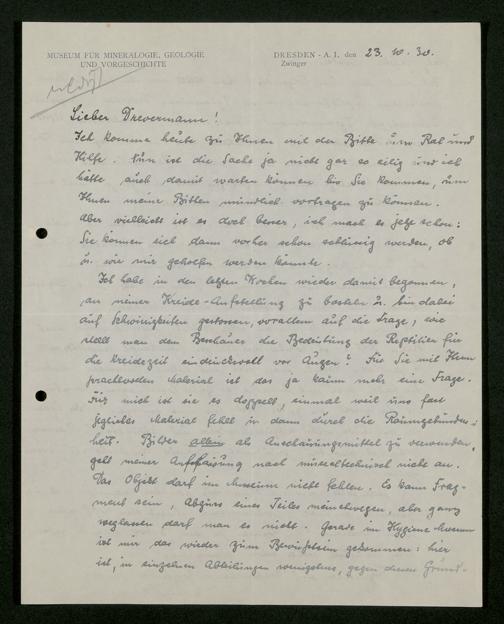 MUSEUM FÜR MINERALOGIE, GEOLOGIE
UND VORGESCHICHTE
DRESDEN - A. 1, den 23. 10. 30.
Zwinger
Lieber Drevermann!
Ich komme heute zu Ihnen mit der Bitte um Rat und
Hilfe. Nun ist die Sache ja nicht gar so eilig und ich
hätte auch damit warten können bis Sie kommen, um
Ihnen meine Bitten mündlich vortragen zu können.
Aber vielleicht ist es doch besser, ich mach es jetzt schon:
Sie können sich dann vorher schon schlüssig werden, ob
u. wie mir geholfen werden könnte.
Ich habe in den letzten Wochen wieder damit begonnen,
an meiner Kreide-Aufstellung zu basteln u. bin dabei
auf Schwierigkeiten gestossen, vorallem auf die Frage, wie
stellt man dem Beschauer die Bedeutung der Reptilien für
die Kreidezeit eindrucksvoll vor Augen? Für Sie mit Ihrem
prachtvollen Material ist das ja kaum mehr eine Frage.
Für mich ist sie es doppelt, einmal weil uns fast
jegliches Material fehlt u. dann durch die Raumgebunden-
heit. Bilder allein als Anschauungsmittel zu verwenden,
geht meiner Auffassung nach museltechnisch nicht an.
Das Objekt darf im Museum nicht fehlen. Es kann Frag-
ment sein, Abguss eines Teiles meinetwegen, aber ganz
weglassen darf man es nicht. Gerade im Hygiene-Museum
ist mir das wieder zum Bewusstsein gekommen: hier
ist, in einzelnen Abteilungen wenigstens, gegen diesen Grund-